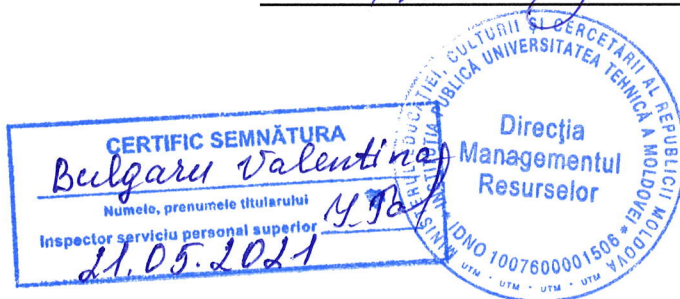 CERTIFIC SEMNĂTURA
Bulgaru Valentina
Numele, prenumele titularului
Inspector serviciu personal superior
21.05.2021
MINISTERUL EDUCAȚIEI, CULTURII ȘI CERCETĂRII AL REPUBLICII MOLDOVA
INSTITUȚIA PUBLICĂ UNIVERSITATEA TEHNICĂ A MOLDOVEI
* IDNO 1007600001506 *
Direcția
Managementul
Resurselor
UTM · UTM · UTM · UTM